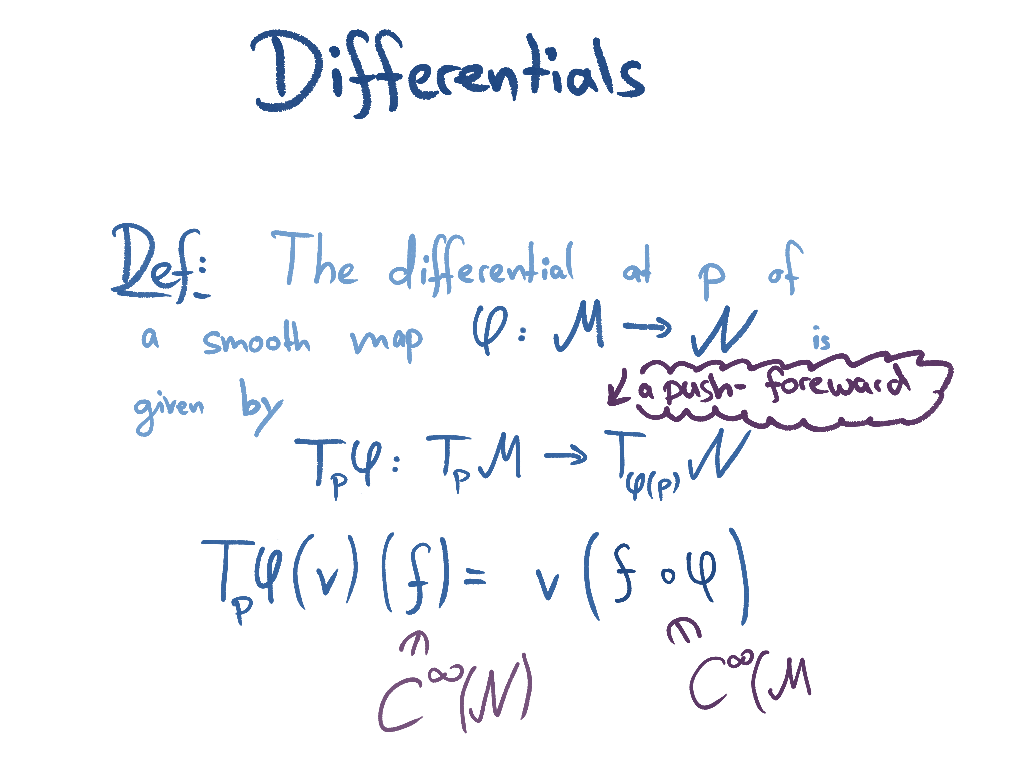 Differentials
Def: The differential at p of
a smooth map φ: M → N is
↙ a push-foreward
given by
T_p φ: T_p M → T_φ(p) N
T_p φ(v)(f) = v(f ∘ φ)
∈ ∈
C^∞(N) C^∞(M